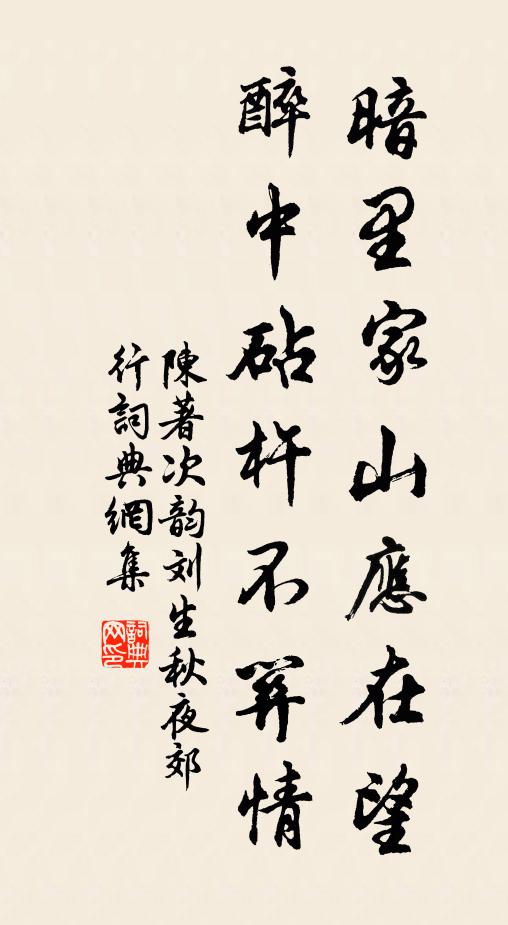 暗里家山應在望
醉中砧杵不關情
陳著次韵刘生秋夜郊
行詞典網集
詞典网印